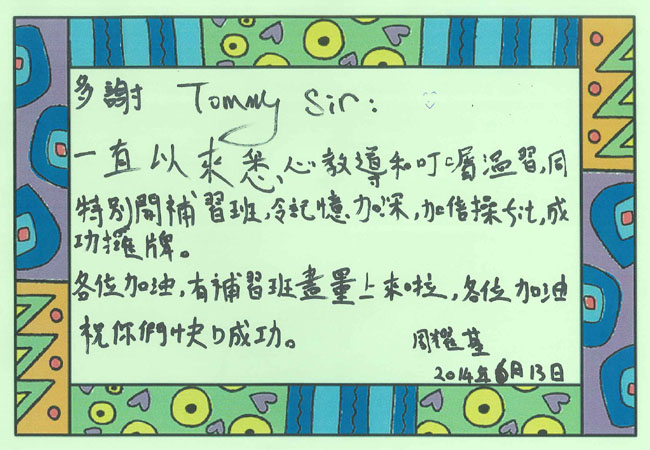 多謝 Tommy Sir:
一直以來悉心教導和叮囑溫習,同
特別開補習班,令記憶加深,加倍操fit,成
功攞牌。
各位加油,有補習班盡量上來啦,各位加油
祝你們快D成功。
周耀基
2014年6月13日